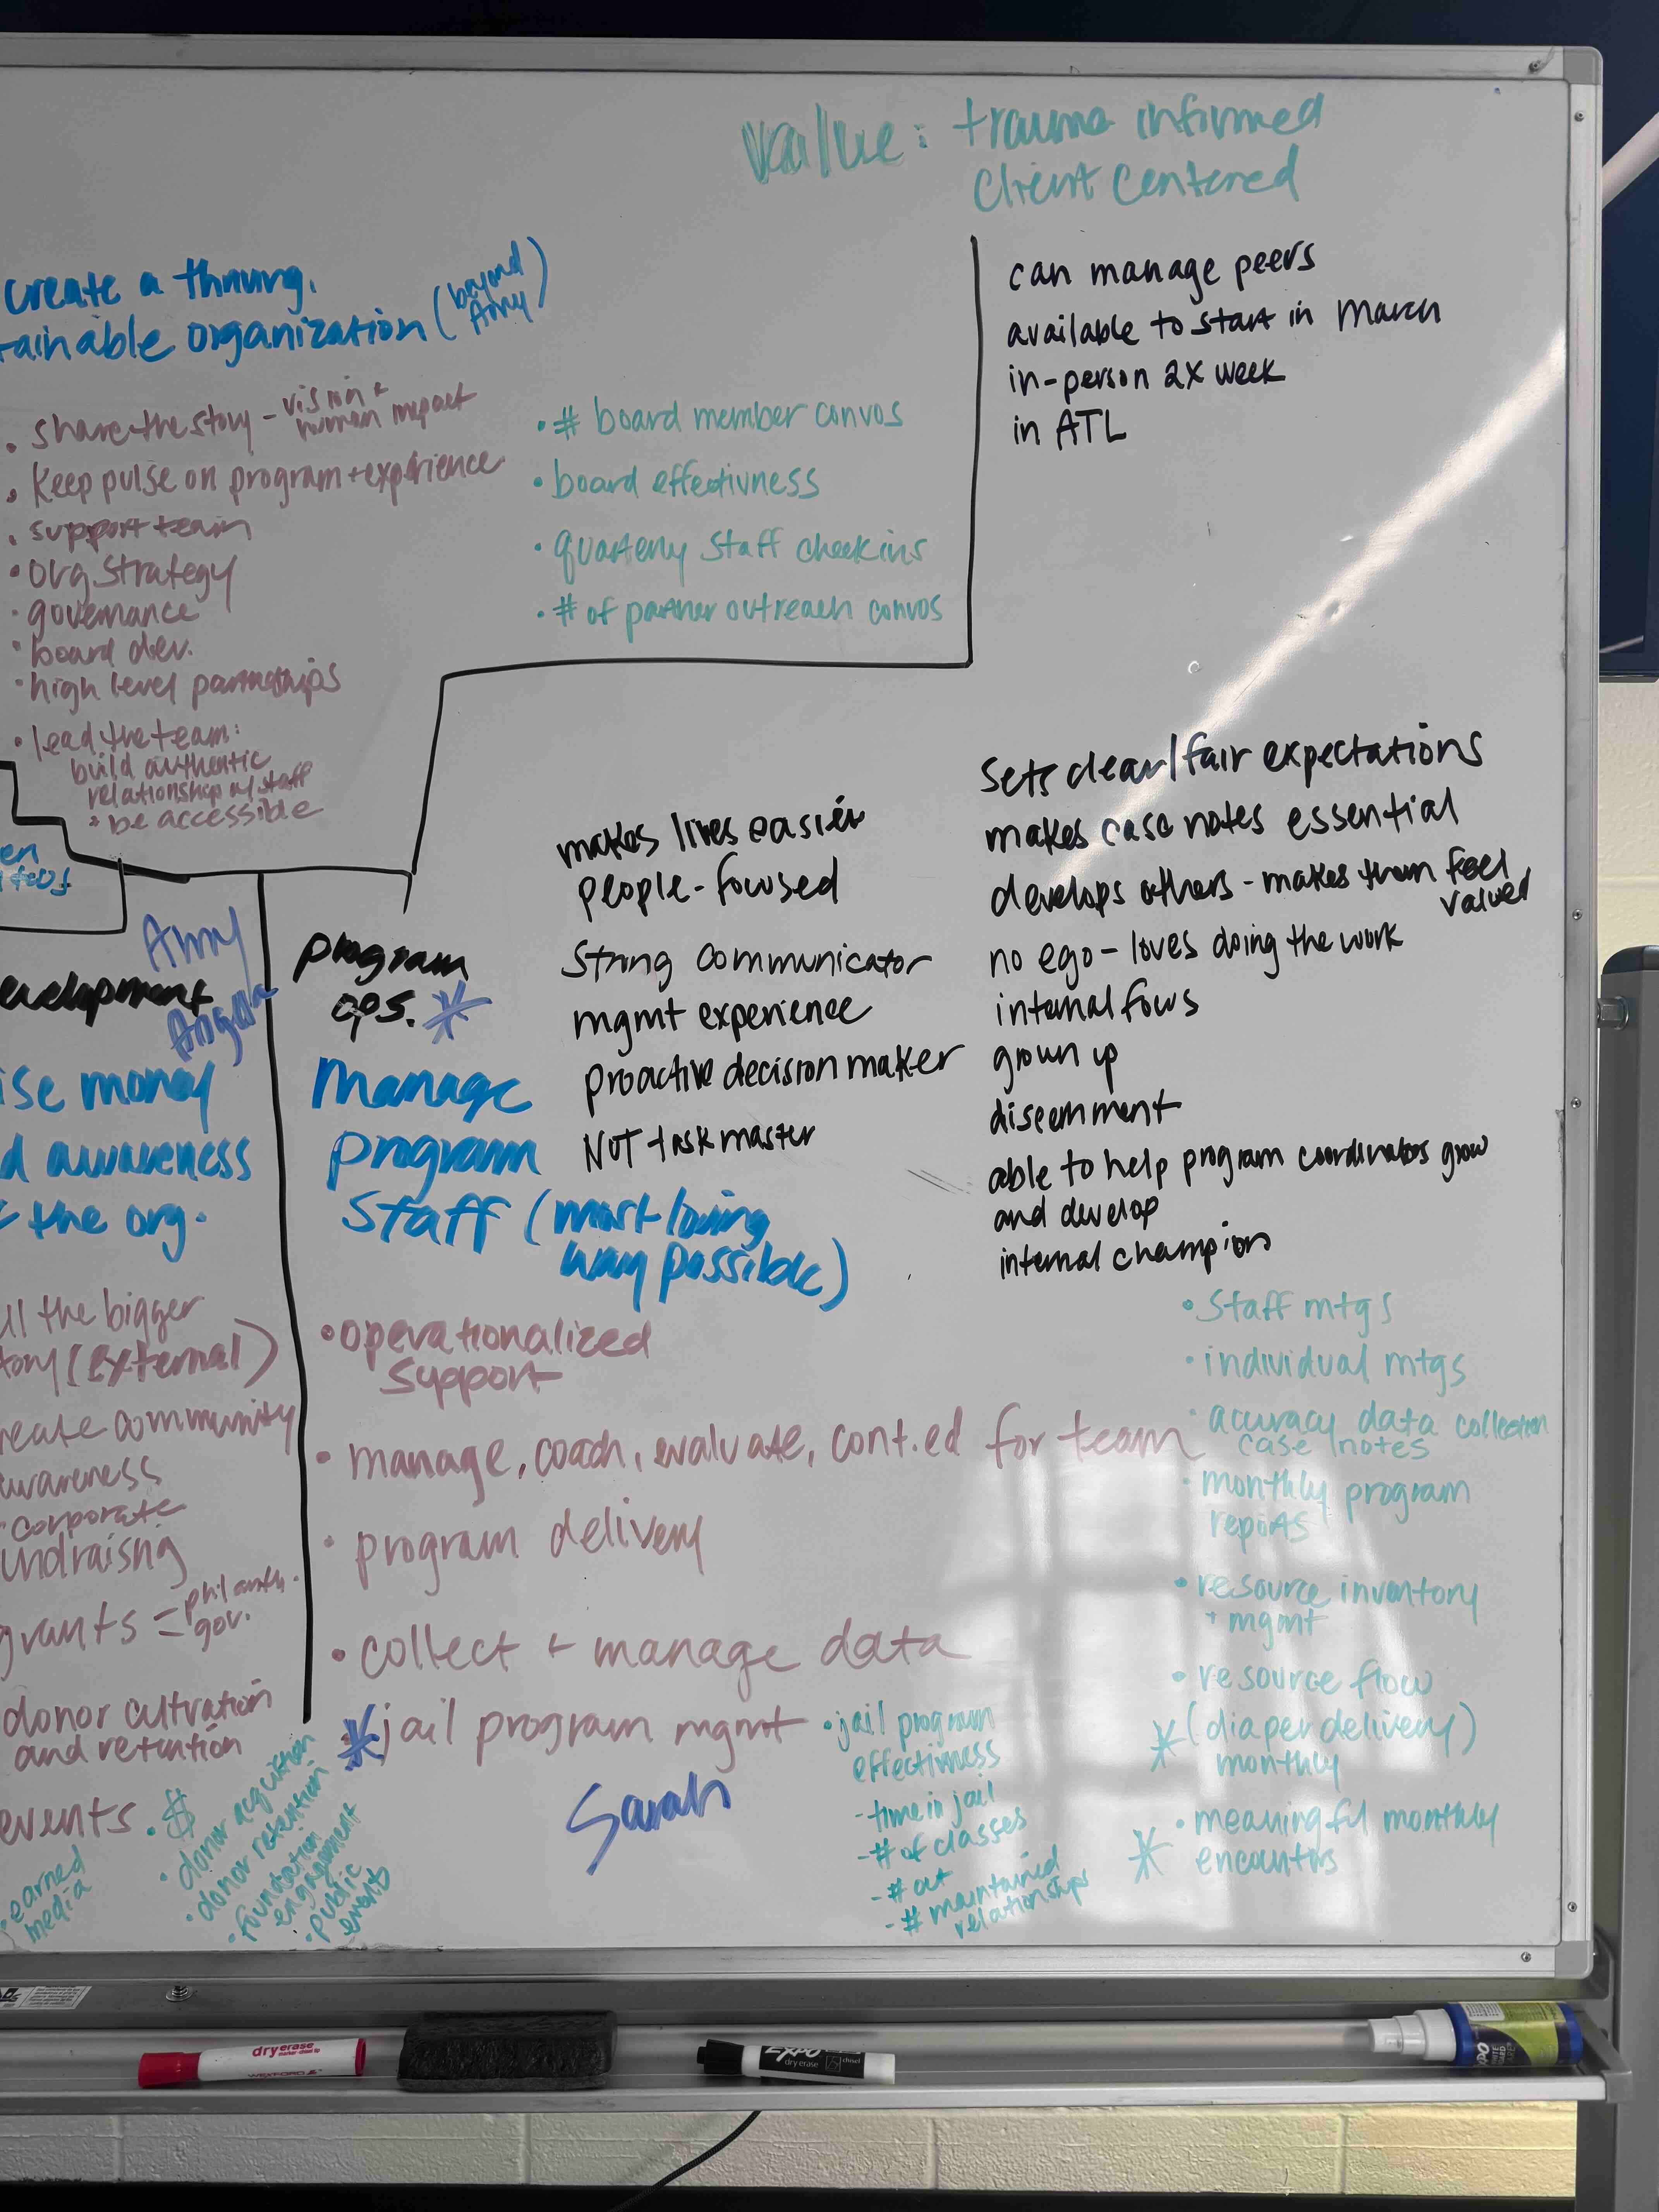 value: trauma informed
client centered
create a thriving,
tainable organization (beyond
Amy)
• share the story - vision +
human impact
• keep pulse on program + experience
• support team
• org strategy
• governance
• board dev.
• high level partnerships
• lead the team:
build authentic
relationship w/ staff
• be accessible
• # board member convos
• board effectivness
• quarterly staff checkins
• # of partner outreach convos
can manage peers
available to start in March
in-person 2x week
in ATL
en
Amy
evelopment
Angela
ise money
d awareness
the org.
ll the bigger
tory (external)
reate community
awareness
corporate
undraising
grants = philanth.
gov.
donor cultivation
and retention
events
• $
• donor acquisition
• donor retention
• foundation
engagement
• public
events
• earned
media
program
ops. *
manage
program
staff (most loving
way possible)
makes lives easier
people-focused
strong communicator
mgmt experience
proactive decision maker
NOT task master
sets clear/fair expectations
makes case notes essential
develops others - makes them feel
valued
no ego - loves doing the work
internal focus
grown up
discernment
able to help program coordinators grow
and develop
internal champion
• operationalized
support
• manage, coach, evaluate, cont.ed for team
• program delivery
• collect + manage data
* jail program mgmt
Sarah
• jail program
effectivness
- time in jail
- # of classes
- # out
- # maintained
relationships
• staff mtgs
• individual mtgs
• accuracy data collection
case notes
• monthly program
reports
• resource inventory
+ mgmt
• resource flow
* (diaper delivery)
monthly
• meaningful monthly
* encounters
dry erase
EXPO
dry erase
chisel
EXPO